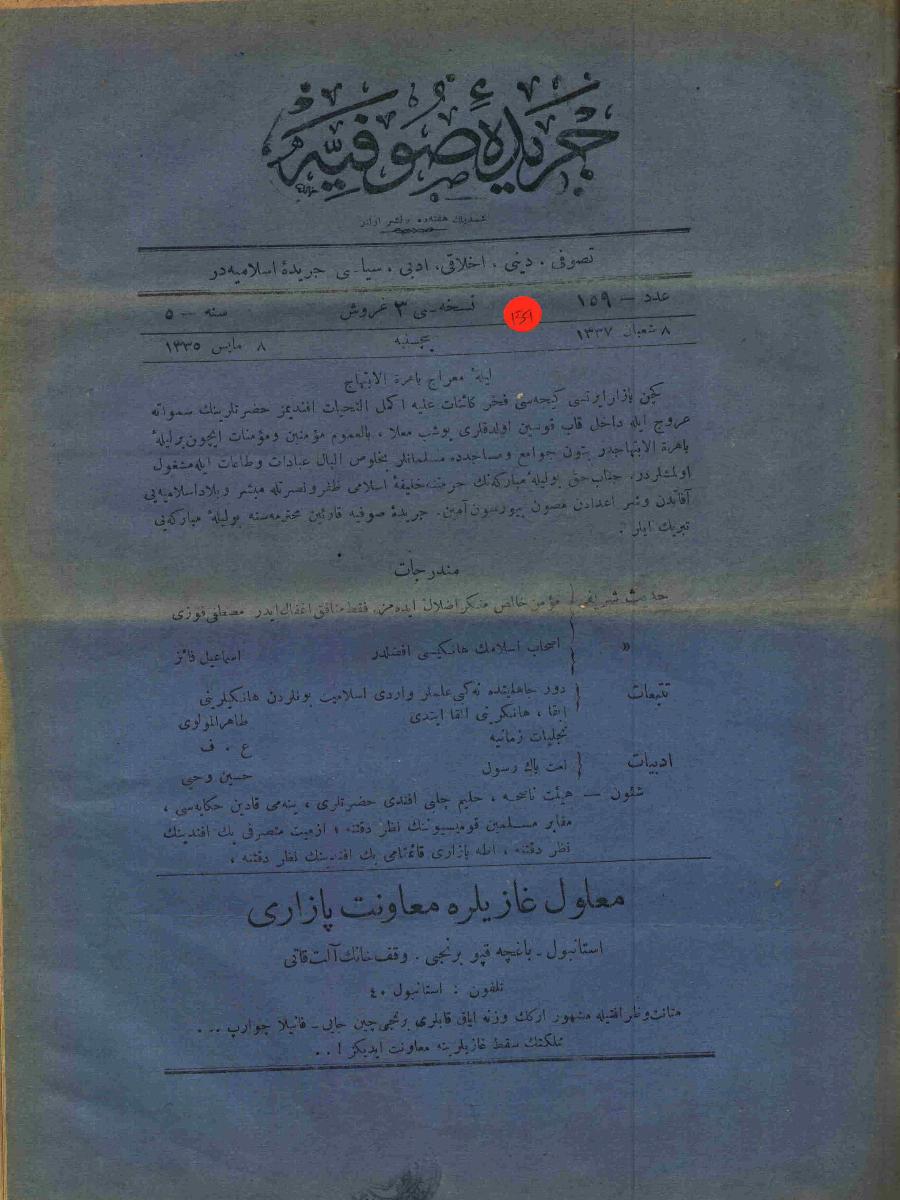 جريدهٔ صوفيه
شمديلك هفته‌ده بر نشر اولنور
تصوفى ، دينى ، اخلاقى ، ادبى ، سياسى جريدهٔ اسلاميه‌در
عدد — ١٥٩ نسخه‌سى ٣ غروش سنه — ٥
٨ شعبان ١٣٣٧ پنجشنبه ٨ مايس ١٣٣٥
ليلهٔ معراج باهرة الابتهاج
كچن بازارايرتسى كيجه‌سى فخر كائنات عليه اكمل التحيات افنديمز حضرتلرينك سمواته
عروج ايله داخل قاب قوسين اولدقلرى بوشب معلا ، بالعموم مؤمنين ومؤمنات ايچون برليلهٔ
باهرة الابتهاجدر بتون جوامع ومساجدده مسلمانلر بخلوص البال عبادات وطاعات ايله مشغول
اولمشلردر، جناب حق بوليلهٔ مباركه‌نك حرمتنه خليفهٔ اسلامى ظفر ونصرتله مبشر وبلاد اسلاميه‌يى
آفاتدن وشر اعدادن مصون بيورسون آمين. جريدهٔ صوفيه قارئين محترمه‌سنه بوليلهٔ مباركه‌يى
تبريك ايلر .
مندرجات
حديث شريف { مؤمن خالص منكر اضلال ايده‌مز. فقط منافق اغفال ايدر مصطفى فوزى
» { اصحاب اسلامك هانكيسى افضلدر اسماعيل فائز
تتبعات { دور جاهليتده نه‌كبى علملر واردى اسلاميت بونلردن هانكيلرينى
ابقا ، هانكيلرينى الغا ايتدى طاهر المولوى
تجليات زمانيه ع . ف
ادبيات { نعت پاك رسول حسين وحى
شئون — هيئت ناصحه ، حليم چلبى افندى حضرتلرى ، ينه‌مى قادين حكايه‌سى ،
مقابر مسلمين قوميسيوننك نظر دقتنه ، ازميت متصرفى بك افندينك
نظر دقتنه ، اطه بازارى قائمقامى بك افندينك نظر دقتنه ،
معلول غازيلره معاونت پازارى
استانبول ـ باغچه قپو برنجى . وقف خانك آلت قاتى
تلفون : استانبول ٤٠
متانت وظرافتيله مشهور اركك وزنه اياق قابلرى برنجى چين چايى ـ فانيلا چوراپ ...
مملكتك سقط غازيلرينه معاونت ايديكز ! ..